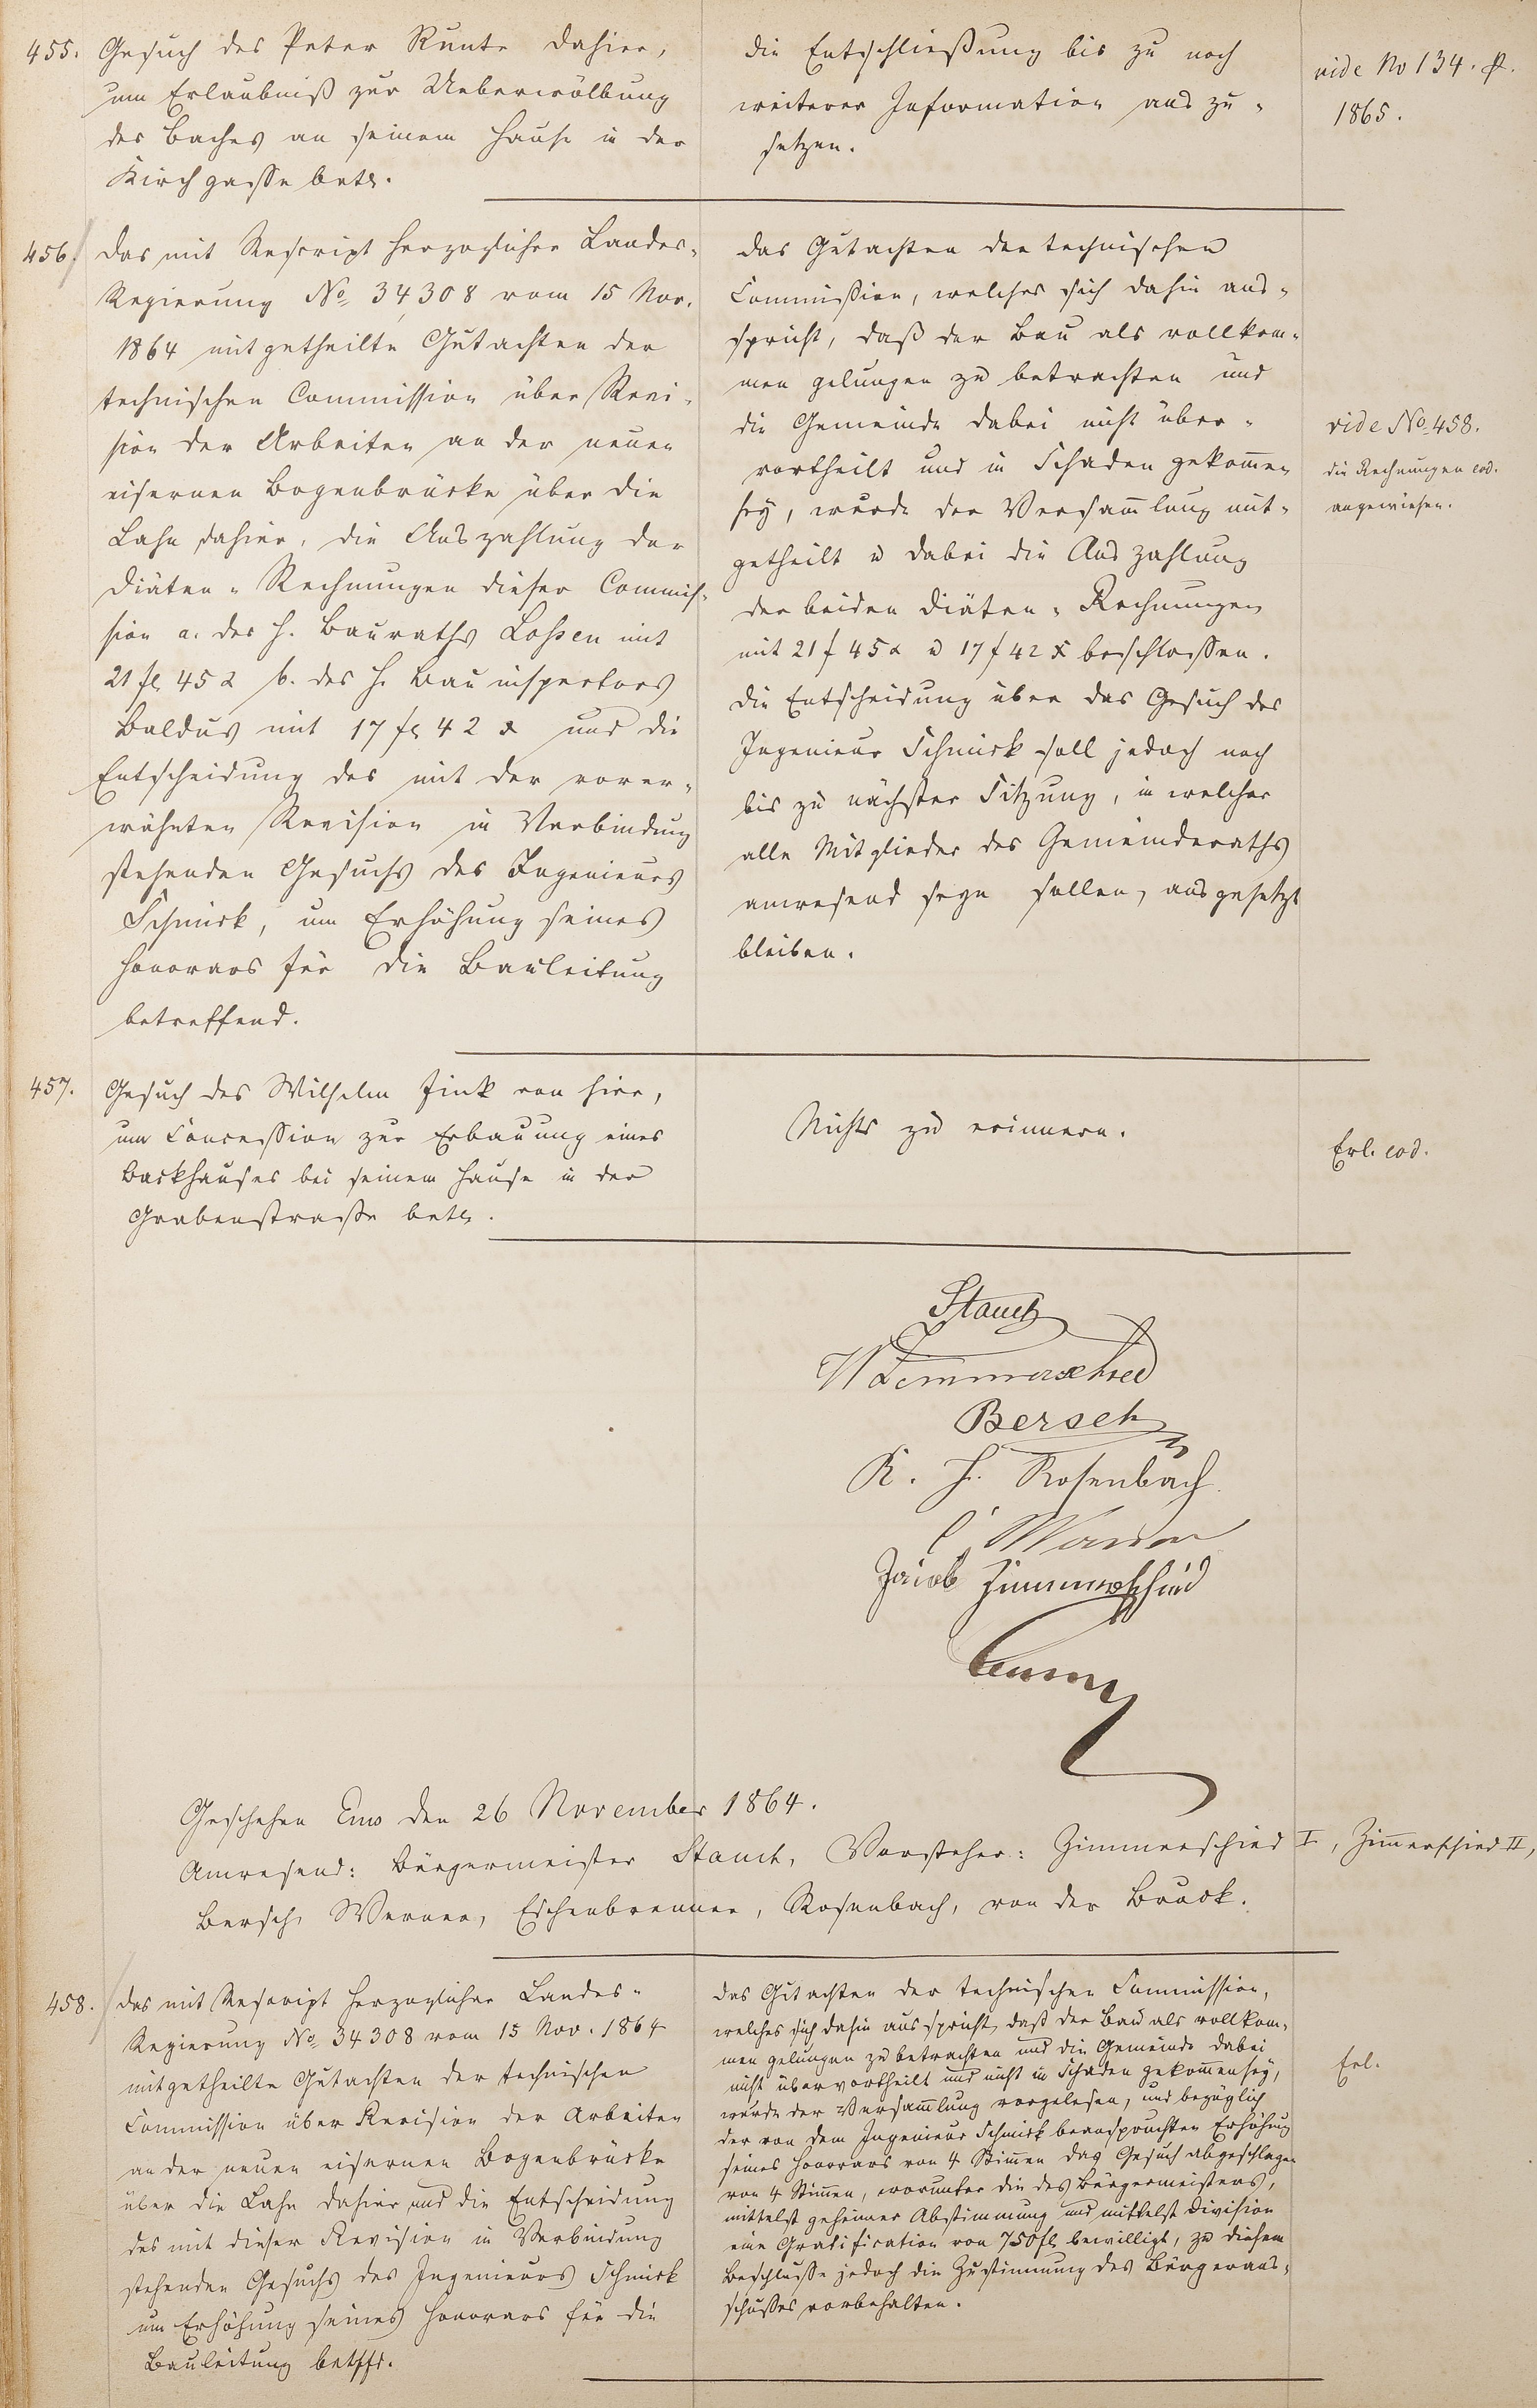 455. Gesuch des Peter Runte dahier,
um Erlaubniß zur Ueberwölbung
des Baches an seinem Hause in der
Kirchgasse betr.
die Entschließung bis zu noch
weiterer Information aus zu-
setzen.
vide No 134. p.
1865.
456. Das mit Rescript Herzoglicher Landes-
Regierung No 34,308 vom 15 Nov.
1864 mitgetheilte Gutachten der
technischen Commission über Revi-
sion der Arbeiten an der neuen
eisernen Bogenbrücke über die
Lahn dahier, die Auszahlung der
Diäten-Rechnungen dieser Commis-
sion a. des H. Bauraths Lossen mit
21 fl 45 x b. des H. Bauinspectors
Baldus mit 17 fl 42 x und die
Entscheidung des mit der vorer-
wähnten Revision in Verbindung
stehenden Gesuchs des Ingenieurs
Schmick, um Erhöhung seines
Honorars für die Bauleitung
betreffend.
Das Gutachten der technischen
Commission, welches sich dahin aus-
spricht, daß der Bau als vollkom-
men gelungen zu betrachten und
die Gemeinde dabei nicht über-
vortheilt und in Schaden gekommen
sey, wurde der Versammlung mit-
getheilt u dabei die Auszahlung
der beiden Diäten-Rechnungen
mit 21 f 45 x u 17 f 42 x beschlossen.
Die Entscheidung über das Gesuch des
Ingenieur Schmick soll jedoch noch
bis zu nächster Sitzung, in welcher
alle Mitglieder des Gemeinderaths
anwesend seyn sollen, ausgesetzt
bleiben.
vide No 458.
die Rechnungen eod.
angewiesen.
457. Gesuch des Wilhelm Fink von hier,
um Concession zur Erbauung eines
Backhauses bei seinem Hause in der
Grabenstrasse betr.
Nichts zu erinnern.
Erl. eod.
Stauch
W Zimmerschied
Bersch
K. H. Rosenbach
Jacob Zimmerschied
Geschehen Ems den 26 November 1864.
Anwesend: Bürgermeister Stauch, Vorsteher: Zimmerschied I, Zimmerschied II,
Bersch, Werner, Eschenbrenner, Rosenbach, von der Bruck.
458. Das mit Rescript Herzoglicher Landes-
Regierung No 34308 vom 15 Nov. 1864
mitgetheilte Gutachten der technischen
Commission über Revision der Arbeiten
an der neuen eisernen Bogenbrücke
über die Lahn dahier und die Entscheidung
des mit dieser Revision in Verbindung
stehenden Gesuchs des Ingenieurs Schmick
um Erhöhung seines Honorars für die
Bauleitung betffd.
Das Gutachten der technischen Commission,
welches sich dahin ausspricht, daß der Bau als vollkom-
men gelungen zu betrachten und die Gemeinde dabei
nicht übervortheilt und nicht in Schaden gekommen sey,
wurde der Versammlung vorgelesen, und bezüglich
der von dem Ingenieur Schmick beanspruchten Erhöhung
seines Honorars von 4 Stimmen das Gesuch abgeschlagen
von 4 Stimmen, worunter die des Bürgermeisters,
mittelst geheimer Abstimmung und mittelst Division
eine Gratification von 750 fl bewilligt, zu diesem
Beschlusse jedoch die Zustimmung des Bürgeraus-
schusses vorbehalten.
Erl.